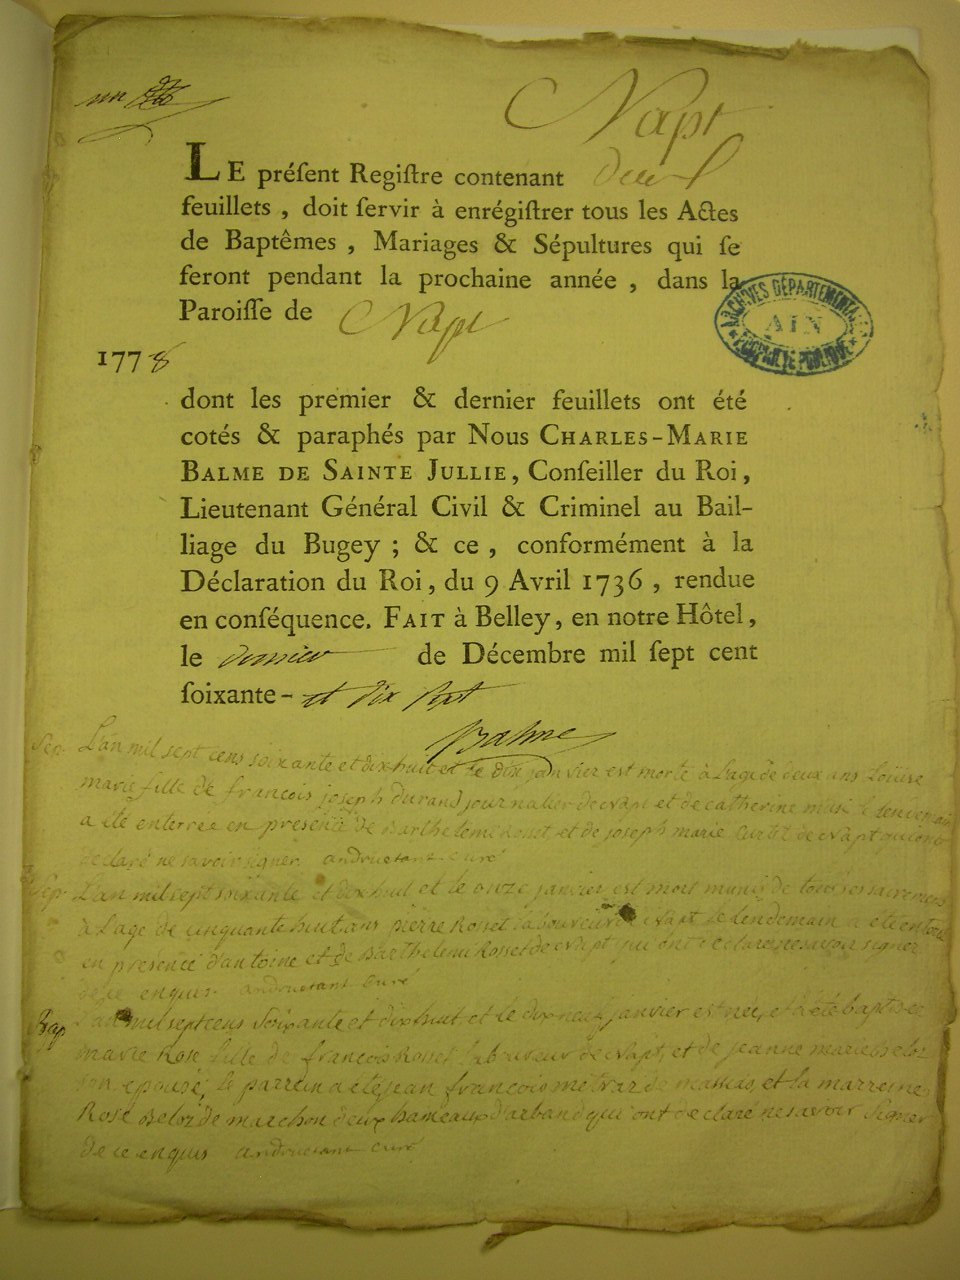 un
Napt
LE préſent Regiſtre contenant deux
feuillets , doit ſervir à enrégiſtrer tous les Actes
de Baptêmes , Mariages & Sépultures qui ſe
feront pendant la prochaine année , dans la
Paroiſſe de Napt
ARCHIVES DÉPARTEMENTALES
AIN
PROPRIÉTÉ PUBLIQUE
1778
dont les premier & dernier feuillets ont été
cotés & paraphés par Nous CHARLES-MARIE
BALME DE SAINTE JULLIE, Conſeiller du Roi,
Lieutenant Général Civil & Criminel au Bail-
liage du Bugey ; & ce , conformément à la
Déclaration du Roi, du 9 Avril 1736 , rendue
en conſéquence. FAIT à Belley, en notre Hôtel,
le dernier de Décembre mil ſept cent
ſoixante- et dix sept
Balme
Sep. L'an mil sept cens soixante et dix huit et le dix janvier est morte à l'age de deux ans Loüise
marie fille de francois joseph durand journalier de Napt et de catherine le lendemain
a été enterrée en presence de Barthelemi Rosset et de joseph marie de Napt qui ont
declaré ne savoir signer. andruetant curé
Sep. L'an mil sept soixante et dix huit et le onze janvier est mort munis de tous ses sacremens
à l'age de cinquante huit ans pierre Rosset laboureur de Napt le lendemain a été enterré
en presence d'antoine et de Barthelemi Rosset de Napt qui ont declaré ne savoir signer
de ce enquis. andruetant curé
Bap L'an mil sept cens soixante et dix huit et le dix neuf janvier est née, et a été baptisée
marie Rose fille de francois Rosset laboureur de Napt, et de jeanne marie Beloz
son epouse, le parrein a été jean francois metraz de et la marreine
Rose Beloz de marchon deux hameaux d'arband qui ont declaré ne savoir signer
de ce enquis andruetant curé